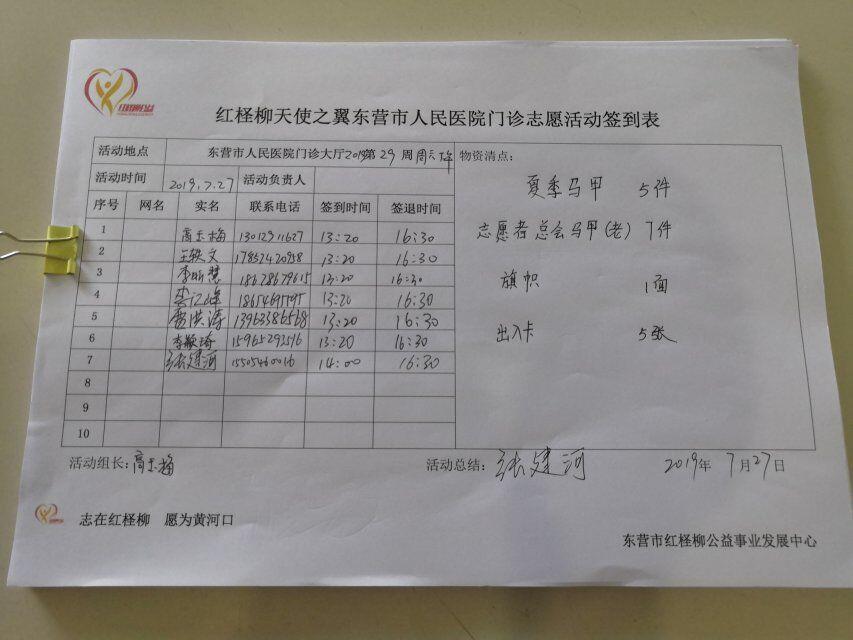 红柽柳天使之翼东营市人民医院门诊志愿活动签到表
活动地点 东营市人民医院门诊大厅2019第29周周六 物资清点:
活动时间 2019.7.27 活动负责人
序号 网名 实名 联系电话 签到时间 签退时间
夏季马甲 5件
1 高玉梅 13012911627 13:20 16:30
志愿者总会马甲(老) 7件
2 王轶文 17852420958 13:20 16:30
3 李昕慧 18678679615 13:20 16:30
旗帜 1面
4 18654695795 13:20 16:30
5 雷洪涛 13963386568 13:20 16:30
出入卡 5张
6 李敏琦 15965292516 13:20 16:30
7 张建河 15505460016 14:00 16:30
8
9
10
活动组长: 高玉梅 活动总结: 张建河 2019年7月27日
志在红柽柳 愿为黄河口
东营市红柽柳公益事业发展中心